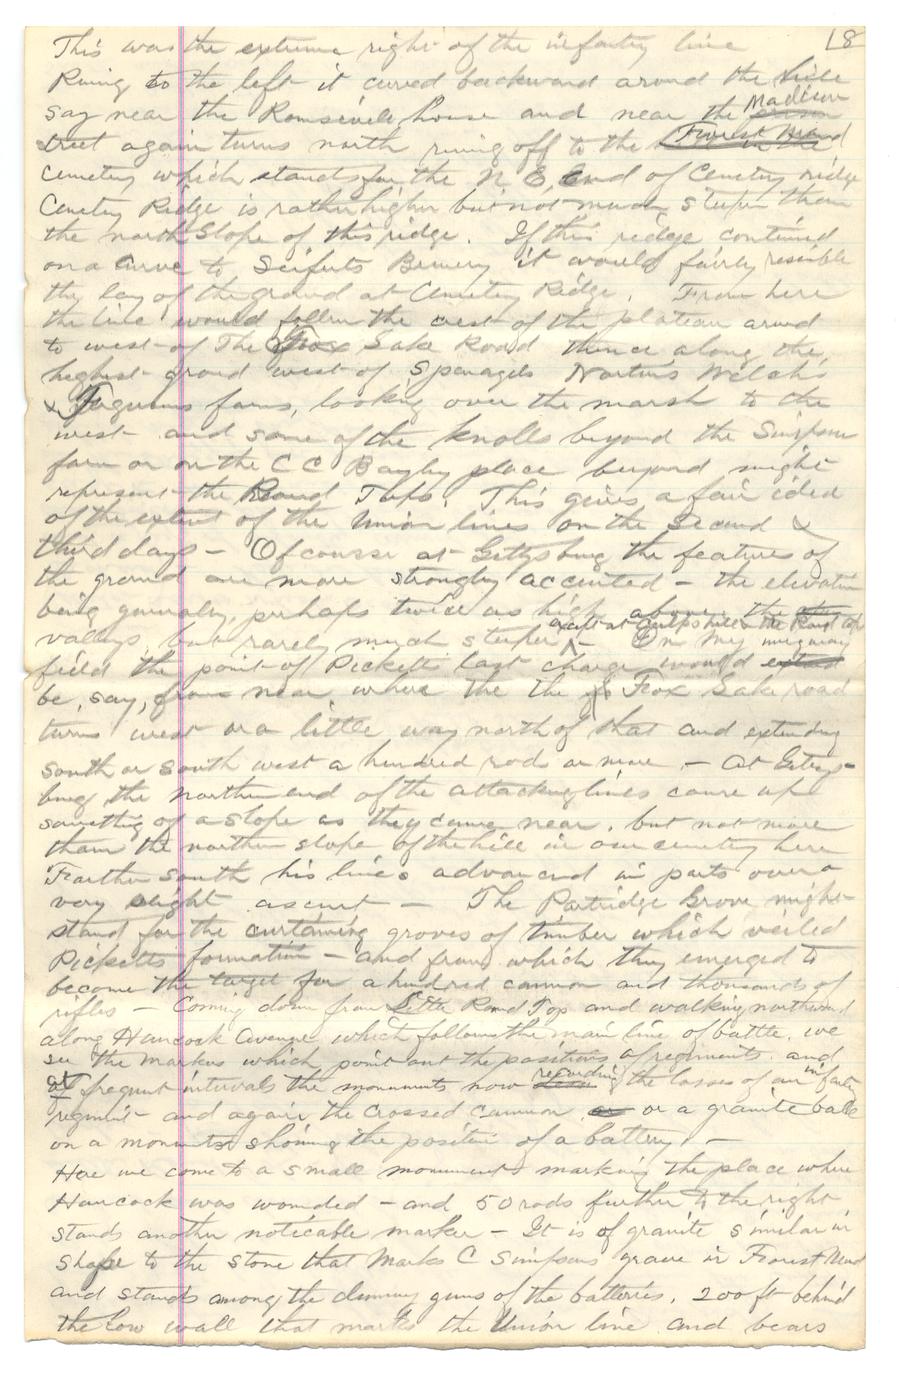 18
This was the extreme right of the infantry line
Runing to the left it curved backward around the hill
say near the Romsevelt house and near the Madison
street again turns north runing off to the
cemetery which stands for the N. E. End of Cemetery ridge
Cemetery Ridge is rather higher but not much steeper than
the north slope of this ridge. If this ridge contined
on a curve to Seiferts Brewery it would fairly resemble
the lay of the ground at Cemetery Ridge. From here
the line would follow the crest of the plateau around
to west of The Fox Lake Road thence along the
highest ground west of Nortons Welchs
& Fergusons farms, looking over the marsh to the
west and some of the knolls beyond the Simpson
farm or on the C C Bayley place beyond might
represent the Round Tops. This gives a fair idea
of the extent of the Union lines on the Second &
third days - Of course at Gettysburg the features of
the ground are more strongly accented - the elevation
being generaly, perhaps twice as high above the
valleys but rarely much steeper except at Culps hill & the Round top - On my imaginary
field the point of Picketts last charge would
be, say, from near where the the Fox Lake road
turns west or a little way north of that and extending
south or south west a hundred rods or more - At Gettys-
burg the northern end of the attacking lines came up
something of a slope as they came near, but not more
than the northern slope of the hill in our cemetery here
Farther south his lines advanced in parts over a
very slight ascent - The Patridge Grove might
stand for the curtaining groves of timber which veiled
Picketts formation - and from which they emerged to
become the target for a hundred cannon and thousands of
rifles - Coming down from Little Round Top and walking northward
along Hancock Avenue which follows the main line of battle, we
see the markers which point out the positions of regiments and
at frequent intervals the monuments now recording the losses of an infantry
regiment and again the crossed cannon or a granite ball
on a monument showing the position of a battery. -
Here we come to a small monument marking the place where
Hancock was wounded - and 50 rods further to the right
stands another noticable marker - It is of granite similar in
shape to the stone that Marks C Simpsons grave in Forest Mound
and stands among the dummy guns of the batteries. 200 ft behind
the low wall that marks the Union line and bears